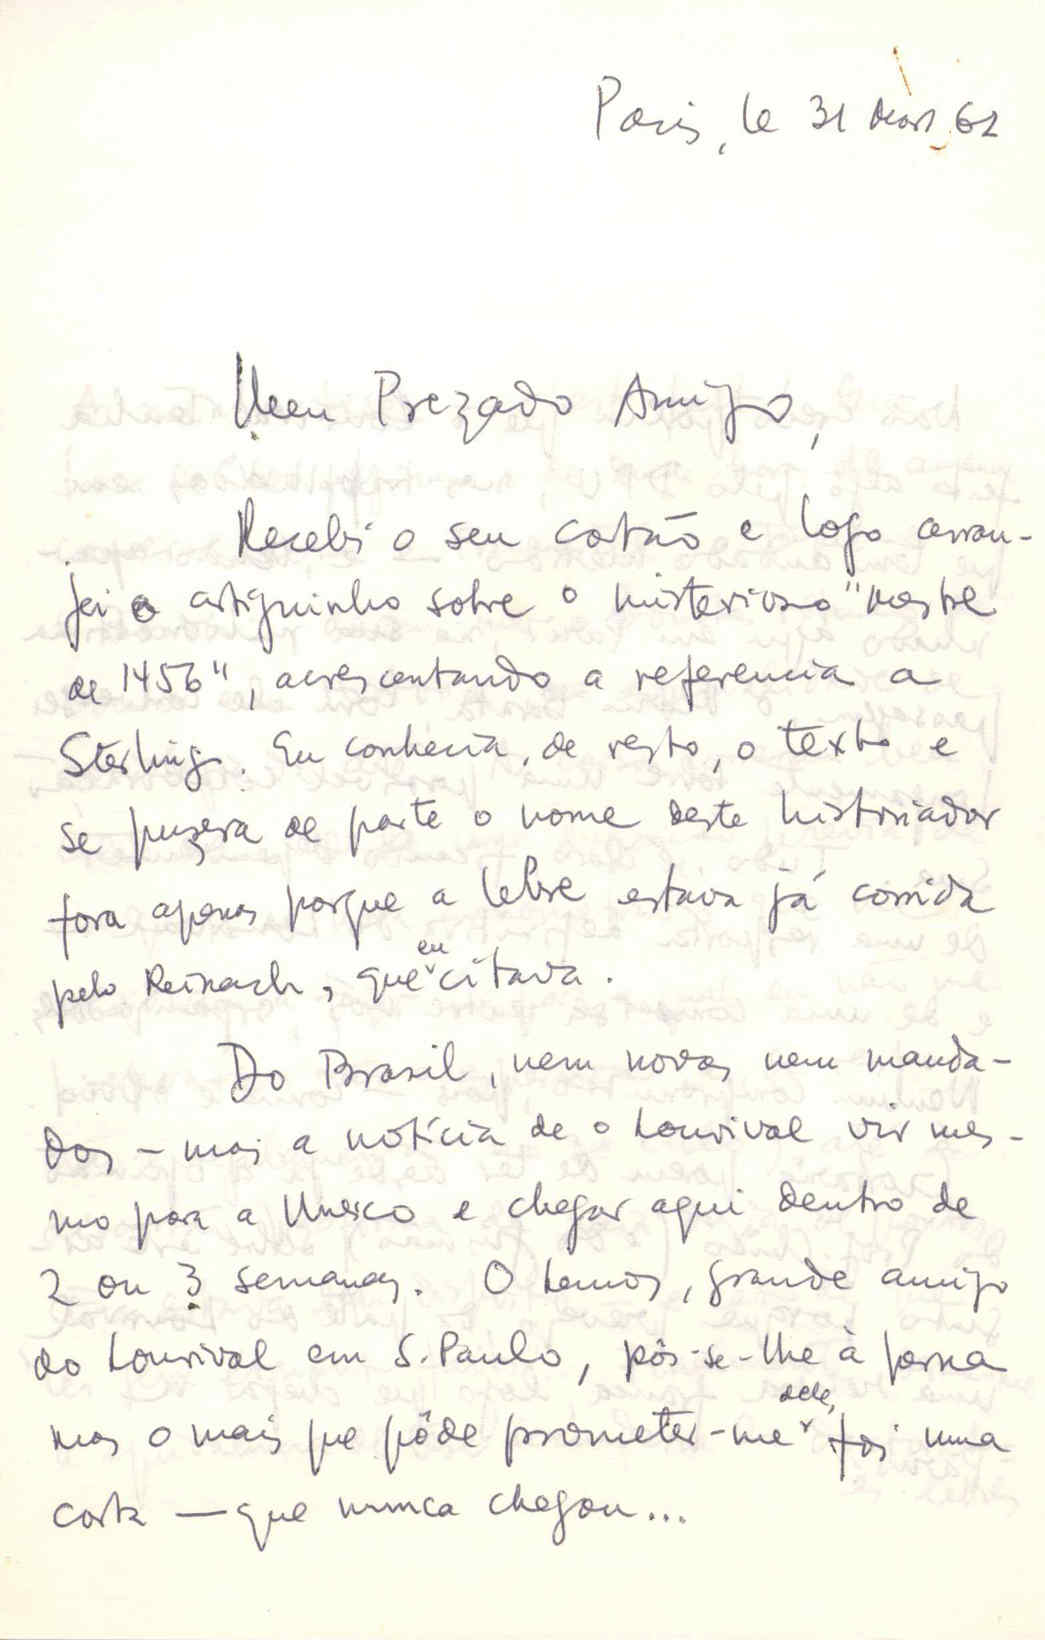 Paris, le 31 mars 62
Meu Prezado Amigo,
Recebi o seu cartão e logo arran-
jei o artiguinho sobre o misterioso "mestre
de 1456", acrescentando a referencia a
Sterling. Eu conhecia, de resto, o texto e
se puzera de parte o nome deste historiador
fora apenas porque a lebre estava já corrida
pelo Reinach, que eu citava.
Do Brasil, nem novas nem manda-
dos – mas a notícia de o Lourival vir mes-
mo para a Unesco e chegar aqui dentro de
2 ou 3 semanas. O Lemos, grande amigo
do Lourival em S. Paulo, pôs-se-lhe à perna
mas o mais que pôde prometer-me dele, foi uma
carta — que nunca chegou...